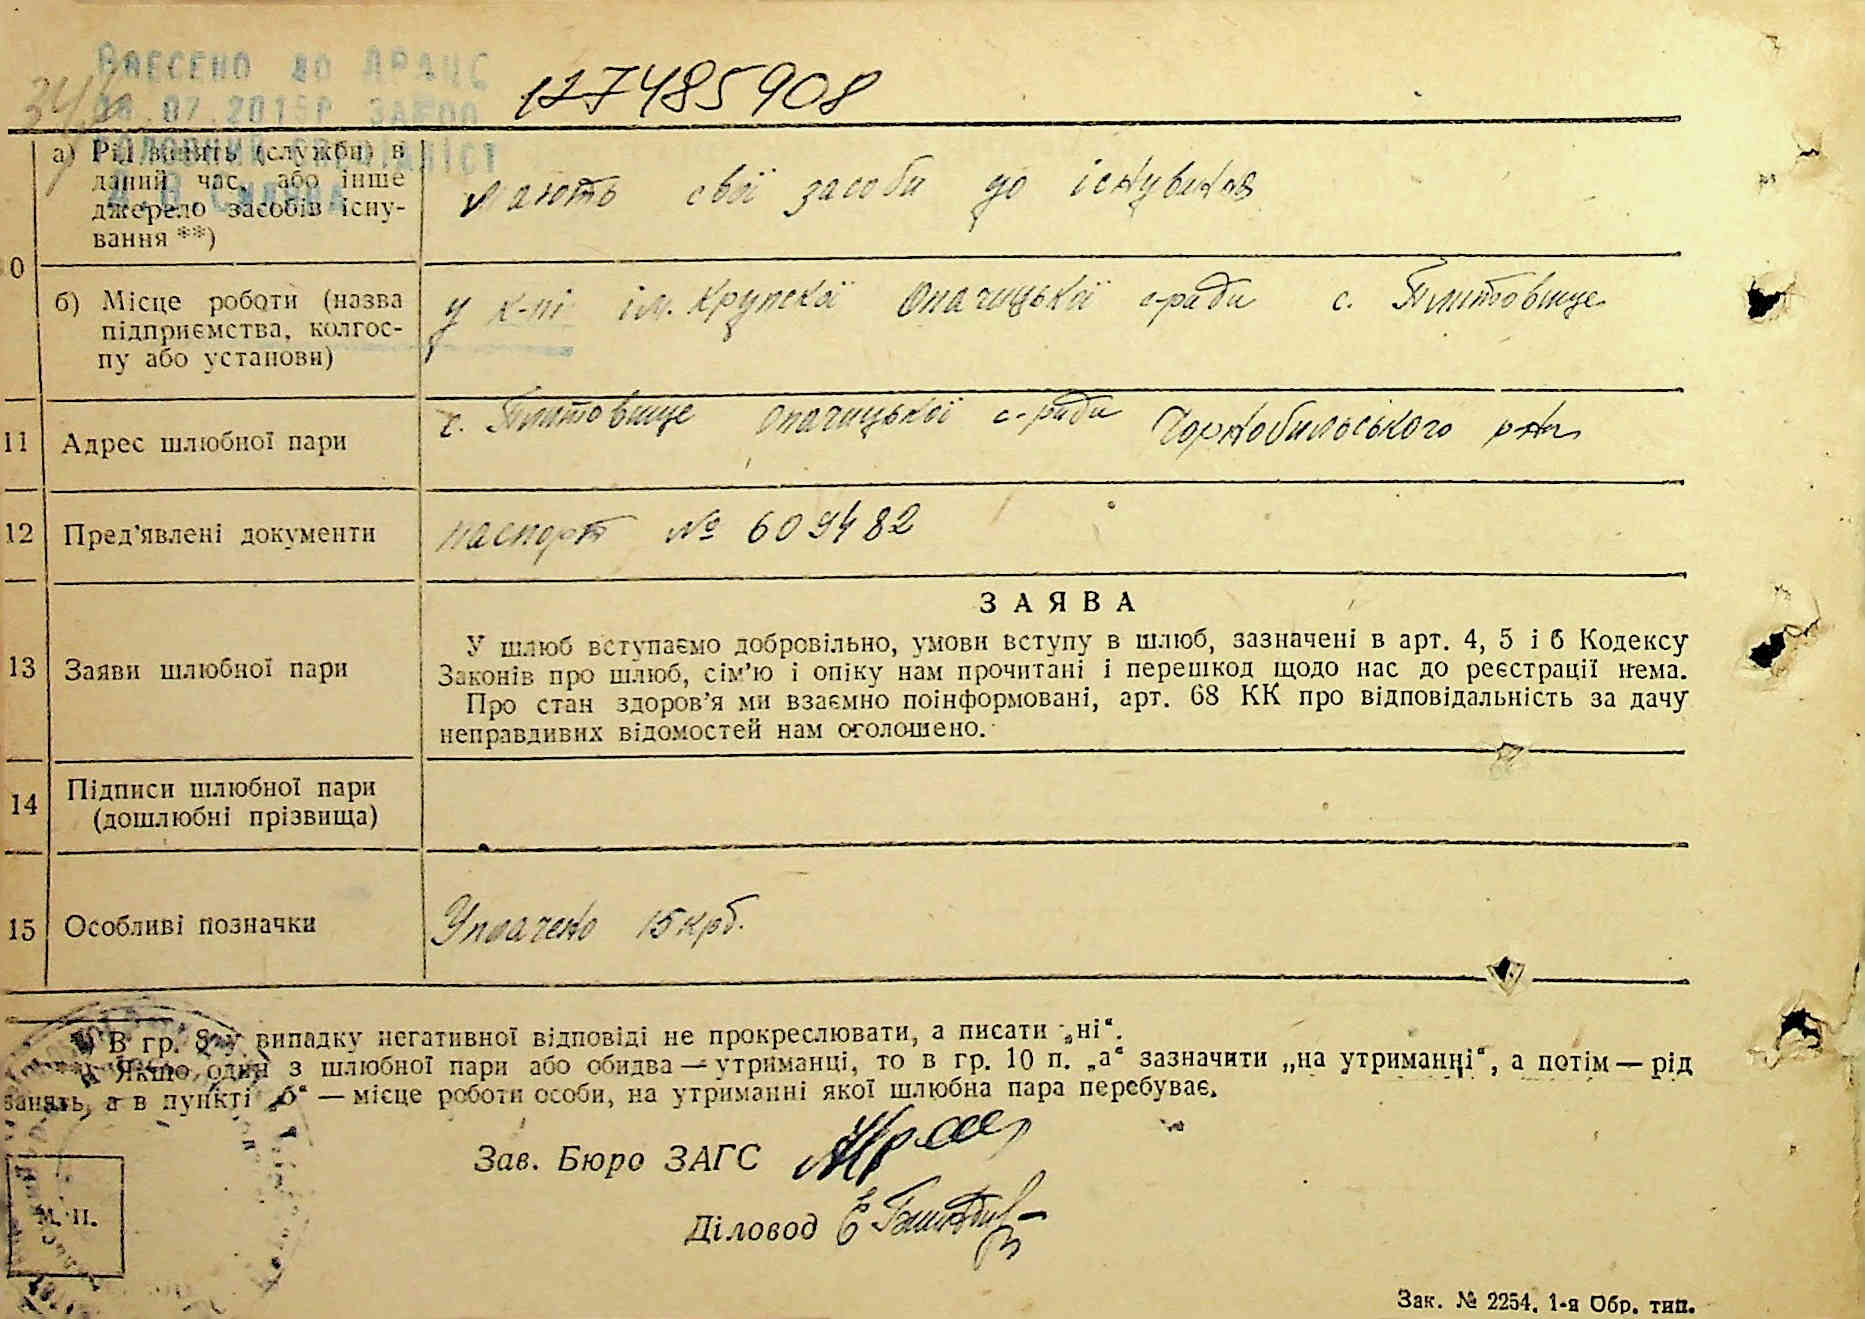 ВНЕСЕНО до ДРАЦС
346
08.07.2015р ЗАВОД
127485908
а) Рід занять (службн) в
даний час, або інше
джерело засобів існу-
вання **)
мають свої засоби до існування
0
б) Місце роботи (назва
підприємства, колгос-
пу або установи)
у к-пі ім. Крупскої Опачицької с-ради с. Плитовище
11 Адрес шлюбної пари
с. Плитовище Опачицької с-ради Чорнобильського р-ну
12 Пред'явлені документи
паспорт № 609482
ЗАЯВА
13 Заяви шлюбної пари
У шлюб вступаємо добровільно, умови вступу в шлюб, зазначені в арт. 4, 5 і 6 Кодексу
Законів про шлюб, сім'ю і опіку нам прочитані і перешкод щодо нас до реєстрації нема.
Про стан здоров'я ми взаємно поінформовані, арт. 68 КК про відповідальність за дачу
неправдивих відомостей нам оголошено.
14 Підписи шлюбної пари
(дошлюбні прізвища)
15 Особливі позначки
Уплачено 15 крб.
*) В гр. 8 у випадку негативної відповіді не прокреслювати, а писати „ні“.
Якщо один з шлюбної пари або обидва — утриманці, то в гр. 10 п. „а“ зазначити „на утриманні“, а потім — рід
занять, а в пункті „б“ — місце роботи особи, на утриманні якої шлюбна пара перебуває.
Зав. Бюро ЗАГС
Діловод
М. П.
Зак. № 2254. 1-я Обр. тип.